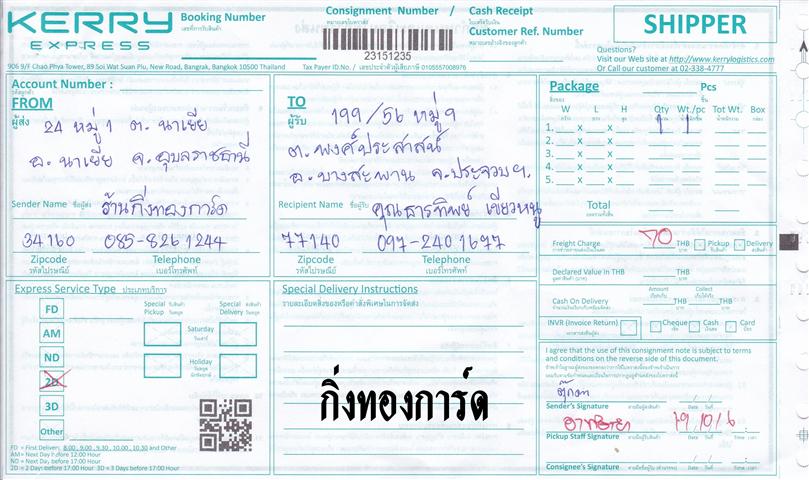 KERRY EXPRESS
Booking Number
เลขที่การรับสินค้า
Consignment Number / Cash Receipt
หมายเลขใบตราส่ง ใบเสร็จรับเงิน
23151235
Customer Ref. Number
หมายเลขอ้างอิงของลูกค้า
SHIPPER
Questions?
Visit our Web site at http://www.kerrylogistics.com
Or Call our customer at 02-338-4777
906 9/F Chao Phya Tower, 89 Soi Wat Suan Plu, New Road, Bangrak, Bangkok 10500 Thailand
Tax Payer ID.No. / เลขประจำตัวผู้เสียภาษี 0105557008976
Account Number :
รหัสลูกค้า
FROM
ผู้ส่ง 24 หมู่ 1 ต. นาเยีย
อ. นาเยีย จ. อุบลราชธานี
Sender Name ชื่อผู้ส่ง ร้านกิ่งทองการ์ด
34160 085-826 1244
Zipcode Telephone
รหัสไปรษณีย์ เบอร์โทรศัพท์
TO
ผู้รับ 199/56 หมู่ 9
ต. พงศ์ประศาสน์
อ. บางสะพาน จ. ประจวบฯ
Recipient Name ชื่อผู้รับ คุณธารทิพย์ เขียวหนู
77140 097-240 1677
Zipcode Telephone
รหัสไปรษณีย์ เบอร์โทรศัพท์
Package Pcs
สิ่งของ ชิ้น
W L H Qty Wt./pc Tot Wt. Box
1. x x 1 1
2. x x
3. x x
4. x x
5. x x
Total
Freight Charge 70 THB Pickup Delivery
Declared Value in THB THB
Amount Collect
Cash On Delivery THB
INVR (Invoice Return) Cheque Cash Card
Express Service Type ประเภทบริการ
FD
AM
ND
2D
3D
Other
Special Pickup
Special Delivery
Saturday
วันเสาร์
Holiday
Special Delivery Instructions
รายละเอียดสิ่งของหรือคำสั่งพิเศษในการจัดส่ง
กิ่งทองการ์ด
I agree that the use of this consignment note is subject to terms
and conditions on the reverse side of this document.
Sender's Signature
19/10/6
Pickup Staff Signature
Consignee's Signature
FD = First Delivery 8.00, 9.00, 9.30, 10.00, 10.30 and Other
AM= Next Day before 12:00 Hour
ND = Next Day before 17:00 Hour
2D = 2 Days before 17:00 Hour 3D = 3 Days before 17:00 Hour